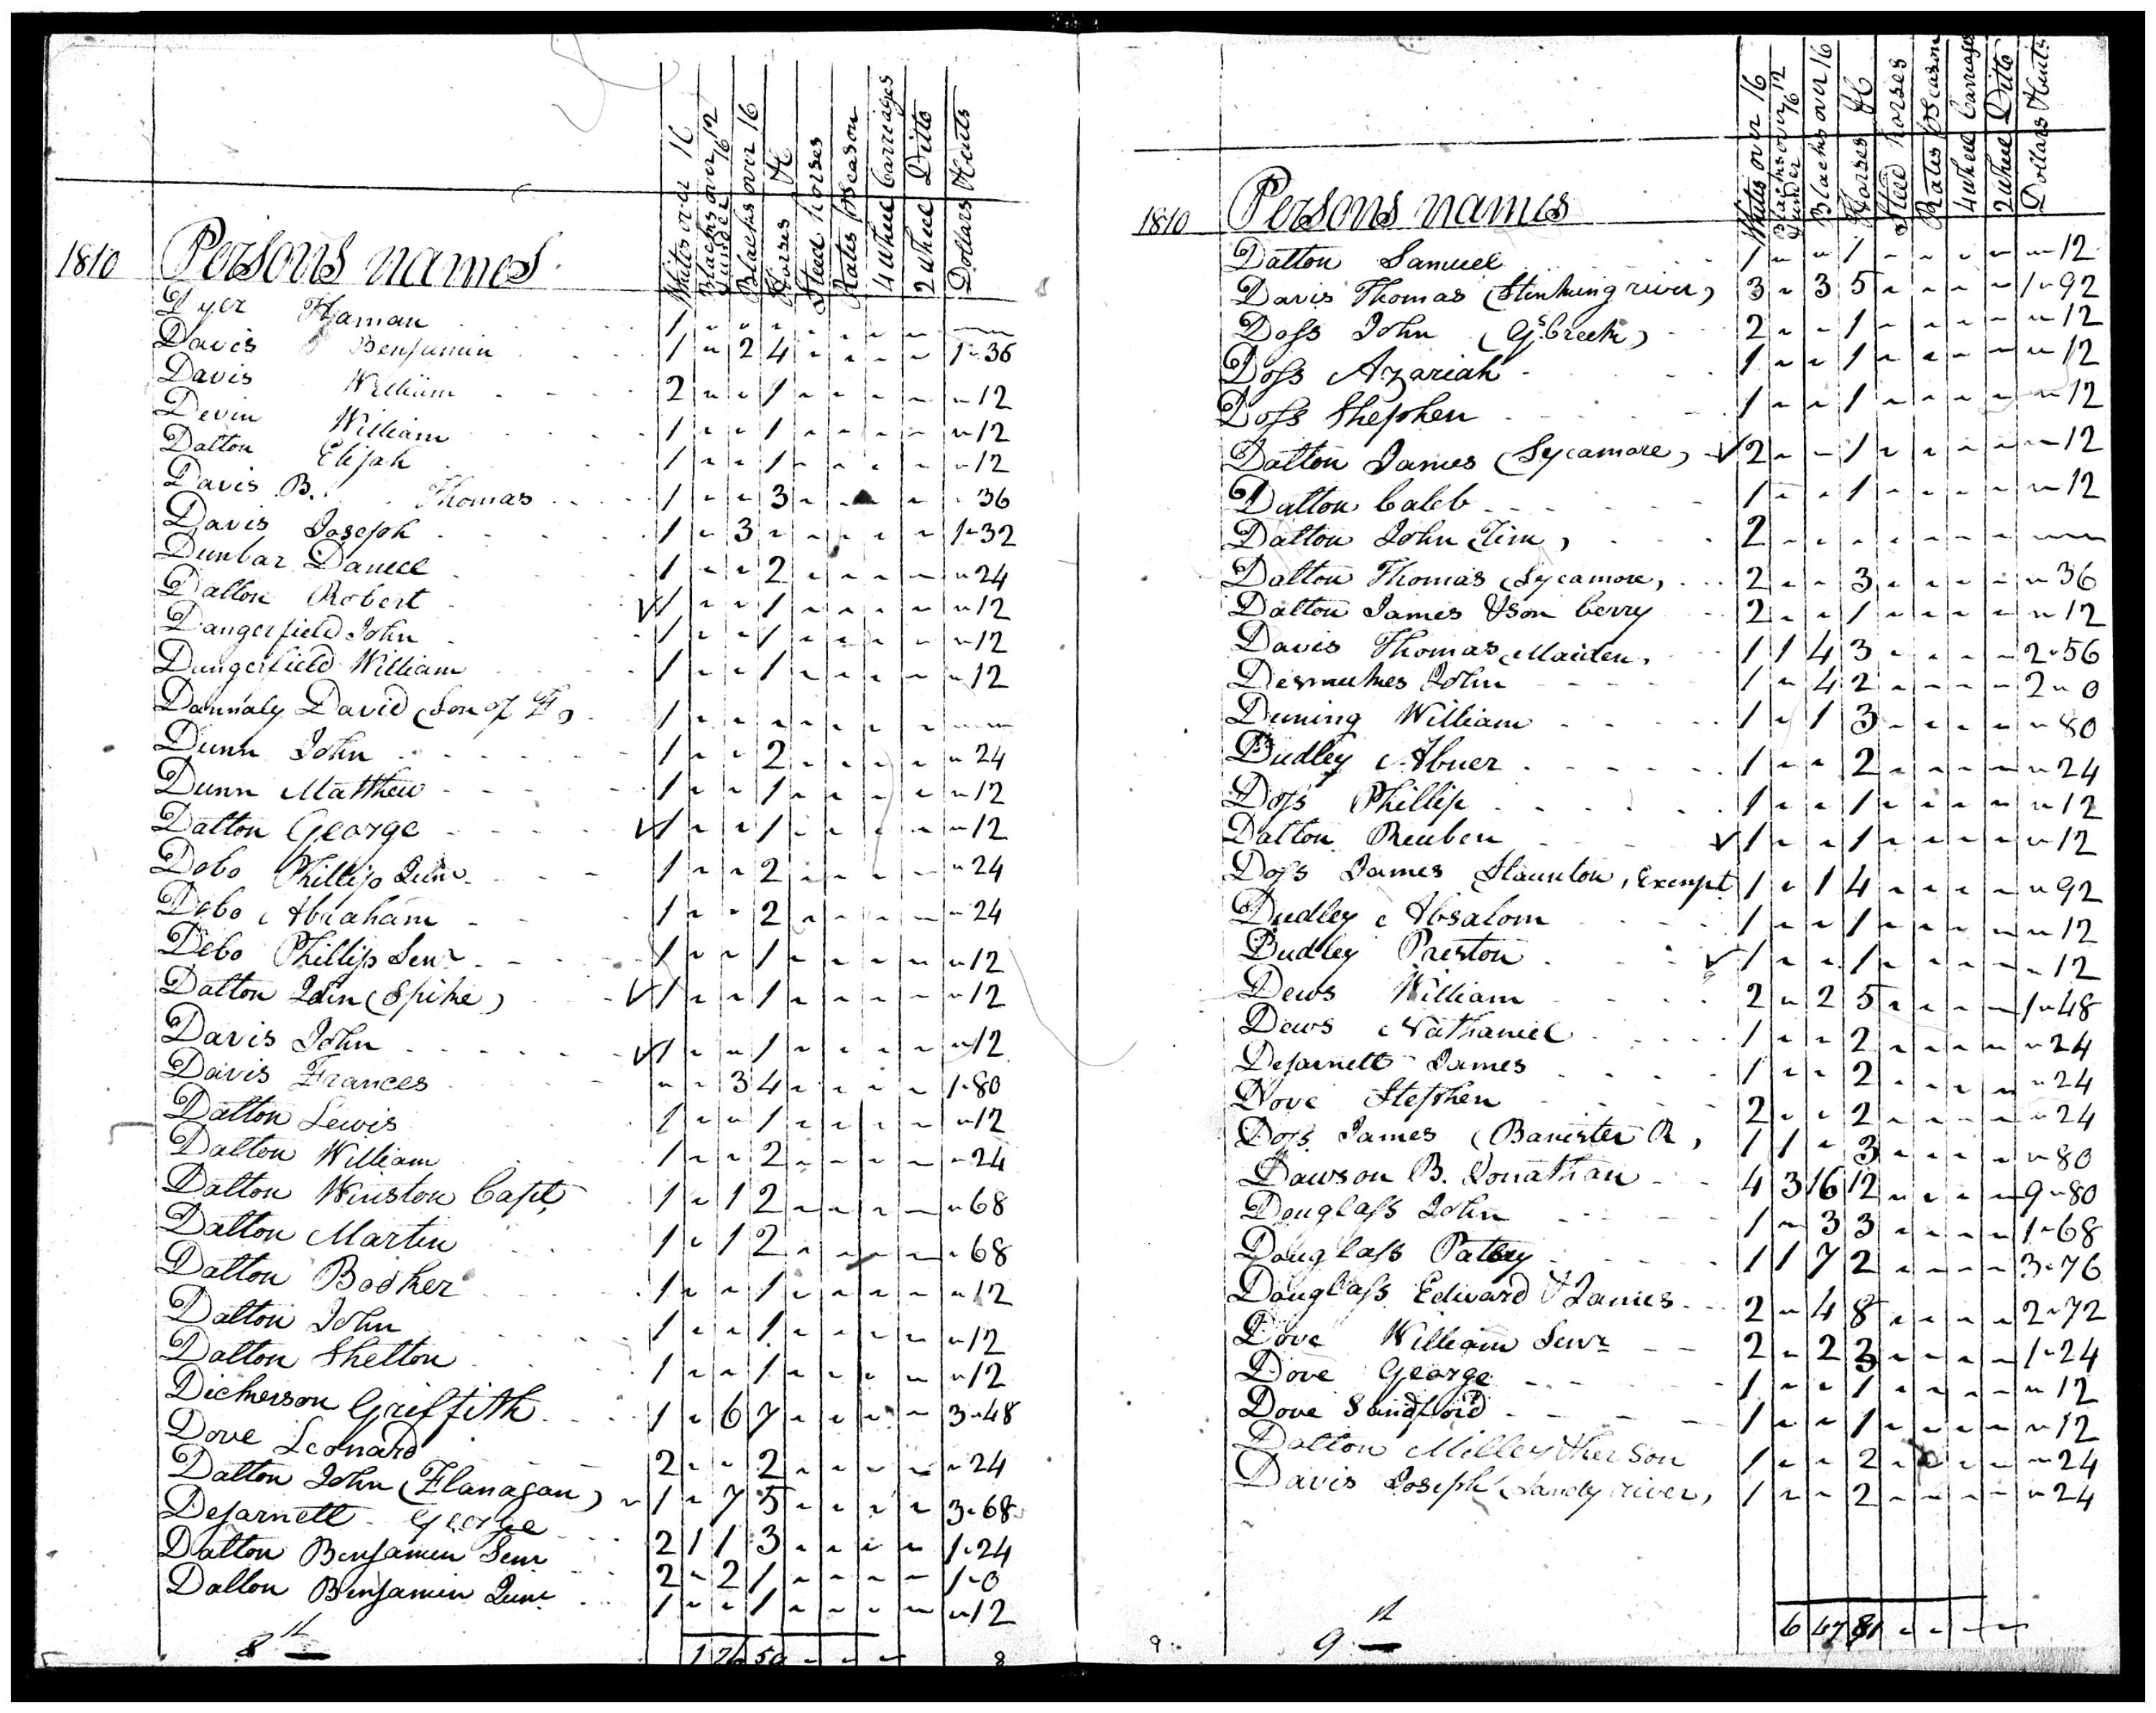 1810 Persons names Whites over 16 Blacks over 12 & under 16 Blacks over 16 Horses &c Steed horses Rates pr Season 4 wheel Carriages 2 wheel Ditto Dollars & Cents
Dyer Haman 1 - - - - - - - -
Davis Benjamin 1 - 2 4 - - - - 1-36
Davis William 2 - - 1 - - - - -12
Devin William 1 - - 1 - - - - -12
Dalton Elijah 1 - - 1 - - - - -12
Davis B. Thomas 1 - - 3 - - - - -36
Davis Joseph 1 - 3 - - - - - 1-32
Dunbar Daniel 1 - - 2 - - - - -24
Dalton Robert ✓ 1 - - 1 - - - - -12
Dangerfield John 1 - - 1 - - - - -12
Dungerfield William 1 - - 1 - - - - -12
Dannaly David (Son of F) 1 - - - - - - - -
Dunn John 1 - - 2 - - - - -24
Dunn Matthew 1 - - 1 - - - - -12
Dalton George ✓ 1 - - 1 - - - - -12
Debo Phillip Junr 1 - - 2 - - - - -24
Debo Abraham 1 - - 2 - - - - -24
Debo Phillip Senr 1 - - 1 - - - - -12
Dalton John (Spike) ✓ 1 - - 1 - - - - -12
Davis John ✓ 1 - - 1 - - - - -12
Davis Frances - - 3 4 - - - - 1-80
Dalton Lewis 1 - - 1 - - - - -12
Dalton William 1 - - 2 - - - - -24
Dalton Winston Capt. 1 - 1 2 - - - - -68
Dalton Martin 1 - 1 2 - - - - -68
Dalton Booker 1 - - 1 - - - - -12
Dalton John 1 - - 1 - - - - -12
Dalton Shelton 1 - - 1 - - - - -12
Dickerson Griffith 1 - 6 7 - - - - 3-48
Dove Leonard 2 - - 2 - - - - -24
Dalton John (Flanagan) 1 - 7 5 - - - - 3-68
Dejarnett George 2 1 1 3 - - - - 1-24
Dalton Benjamin Senr 2 - 2 1 - - - - 1-0
Dalton Benjamin Junr 1 - - 1 - - - - -12
8th 1 26 50 - - - 8
1810 Persons names Whites over 16 Blacks over 12 & under 16 Blacks over 16 Horses &c Steed horses Rates pr Season 4 wheel Carriages 2 wheel Ditto Dollars & Cents
Dalton Samuel 1 - - 1 - - - - -12
Davis Thomas (Stinking river) 3 - 3 5 - - - - 1-92
Doss John (Gs. Creek) 2 - - 1 - - - - -12
Doss Azariah 1 - - 1 - - - - -12
Doss Shephen 1 - - 1 - - - - -12
Dalton James (Sycamore) ✓ 2 - - 1 - - - - -12
Dalton Caleb 1 - - 1 - - - - -12
Dalton John (Tim) 2 - - - - - - - -
Dalton Thomas (Sycamore) 2 - - 3 - - - - -36
Dalton James & son Berry 2 - - 1 - - - - -12
Davis Thomas Maiden 1 1 4 3 - - - - 2-56
John 1 - 4 2 - - - - 2-0
Duning William 1 - 1 3 - - - - -80
Dudley Abner 1 - - 2 - - - - -24
Doss Phillip 1 - - 1 - - - - -12
Dalton Reuben ✓ 1 - - 1 - - - - -12
Doss James Staunton, Exempt 1 - 1 4 - - - - -92
Dudley Absalom 1 - - 1 - - - - -12
Dudley Preston ✓ 1 - - 1 - - - - -12
Dews William 2 - 2 5 - - - - 1-48
Dews Nathaniel 1 - - 2 - - - - -24
Dejarnett James 1 - - 2 - - - - -24
Dove Stephen 2 - - 2 - - - - -24
Doss James (Banister R) 1 1 - 3 - - - - -80
Dawson B. Jonathan 4 3 16 12 - - - - 9-80
Douglass John 1 - 3 3 - - - - 1-68
Douglass Patsey 1 1 7 2 - - - - 3-76
Douglass Edward & James 2 - 4 8 - - - - 2-72
Dove William Senr 2 - 2 3 - - - - 1-24
Dove George 1 - - 1 - - - - -12
Dove Sandford 1 - - 1 - - - - -12
Dalton Milley & her Son 1 - - 2 - - - - -24
Davis Joseph (Sandy river) 1 - - 2 - - - - -24
9 9th 6 47 81 - - - -